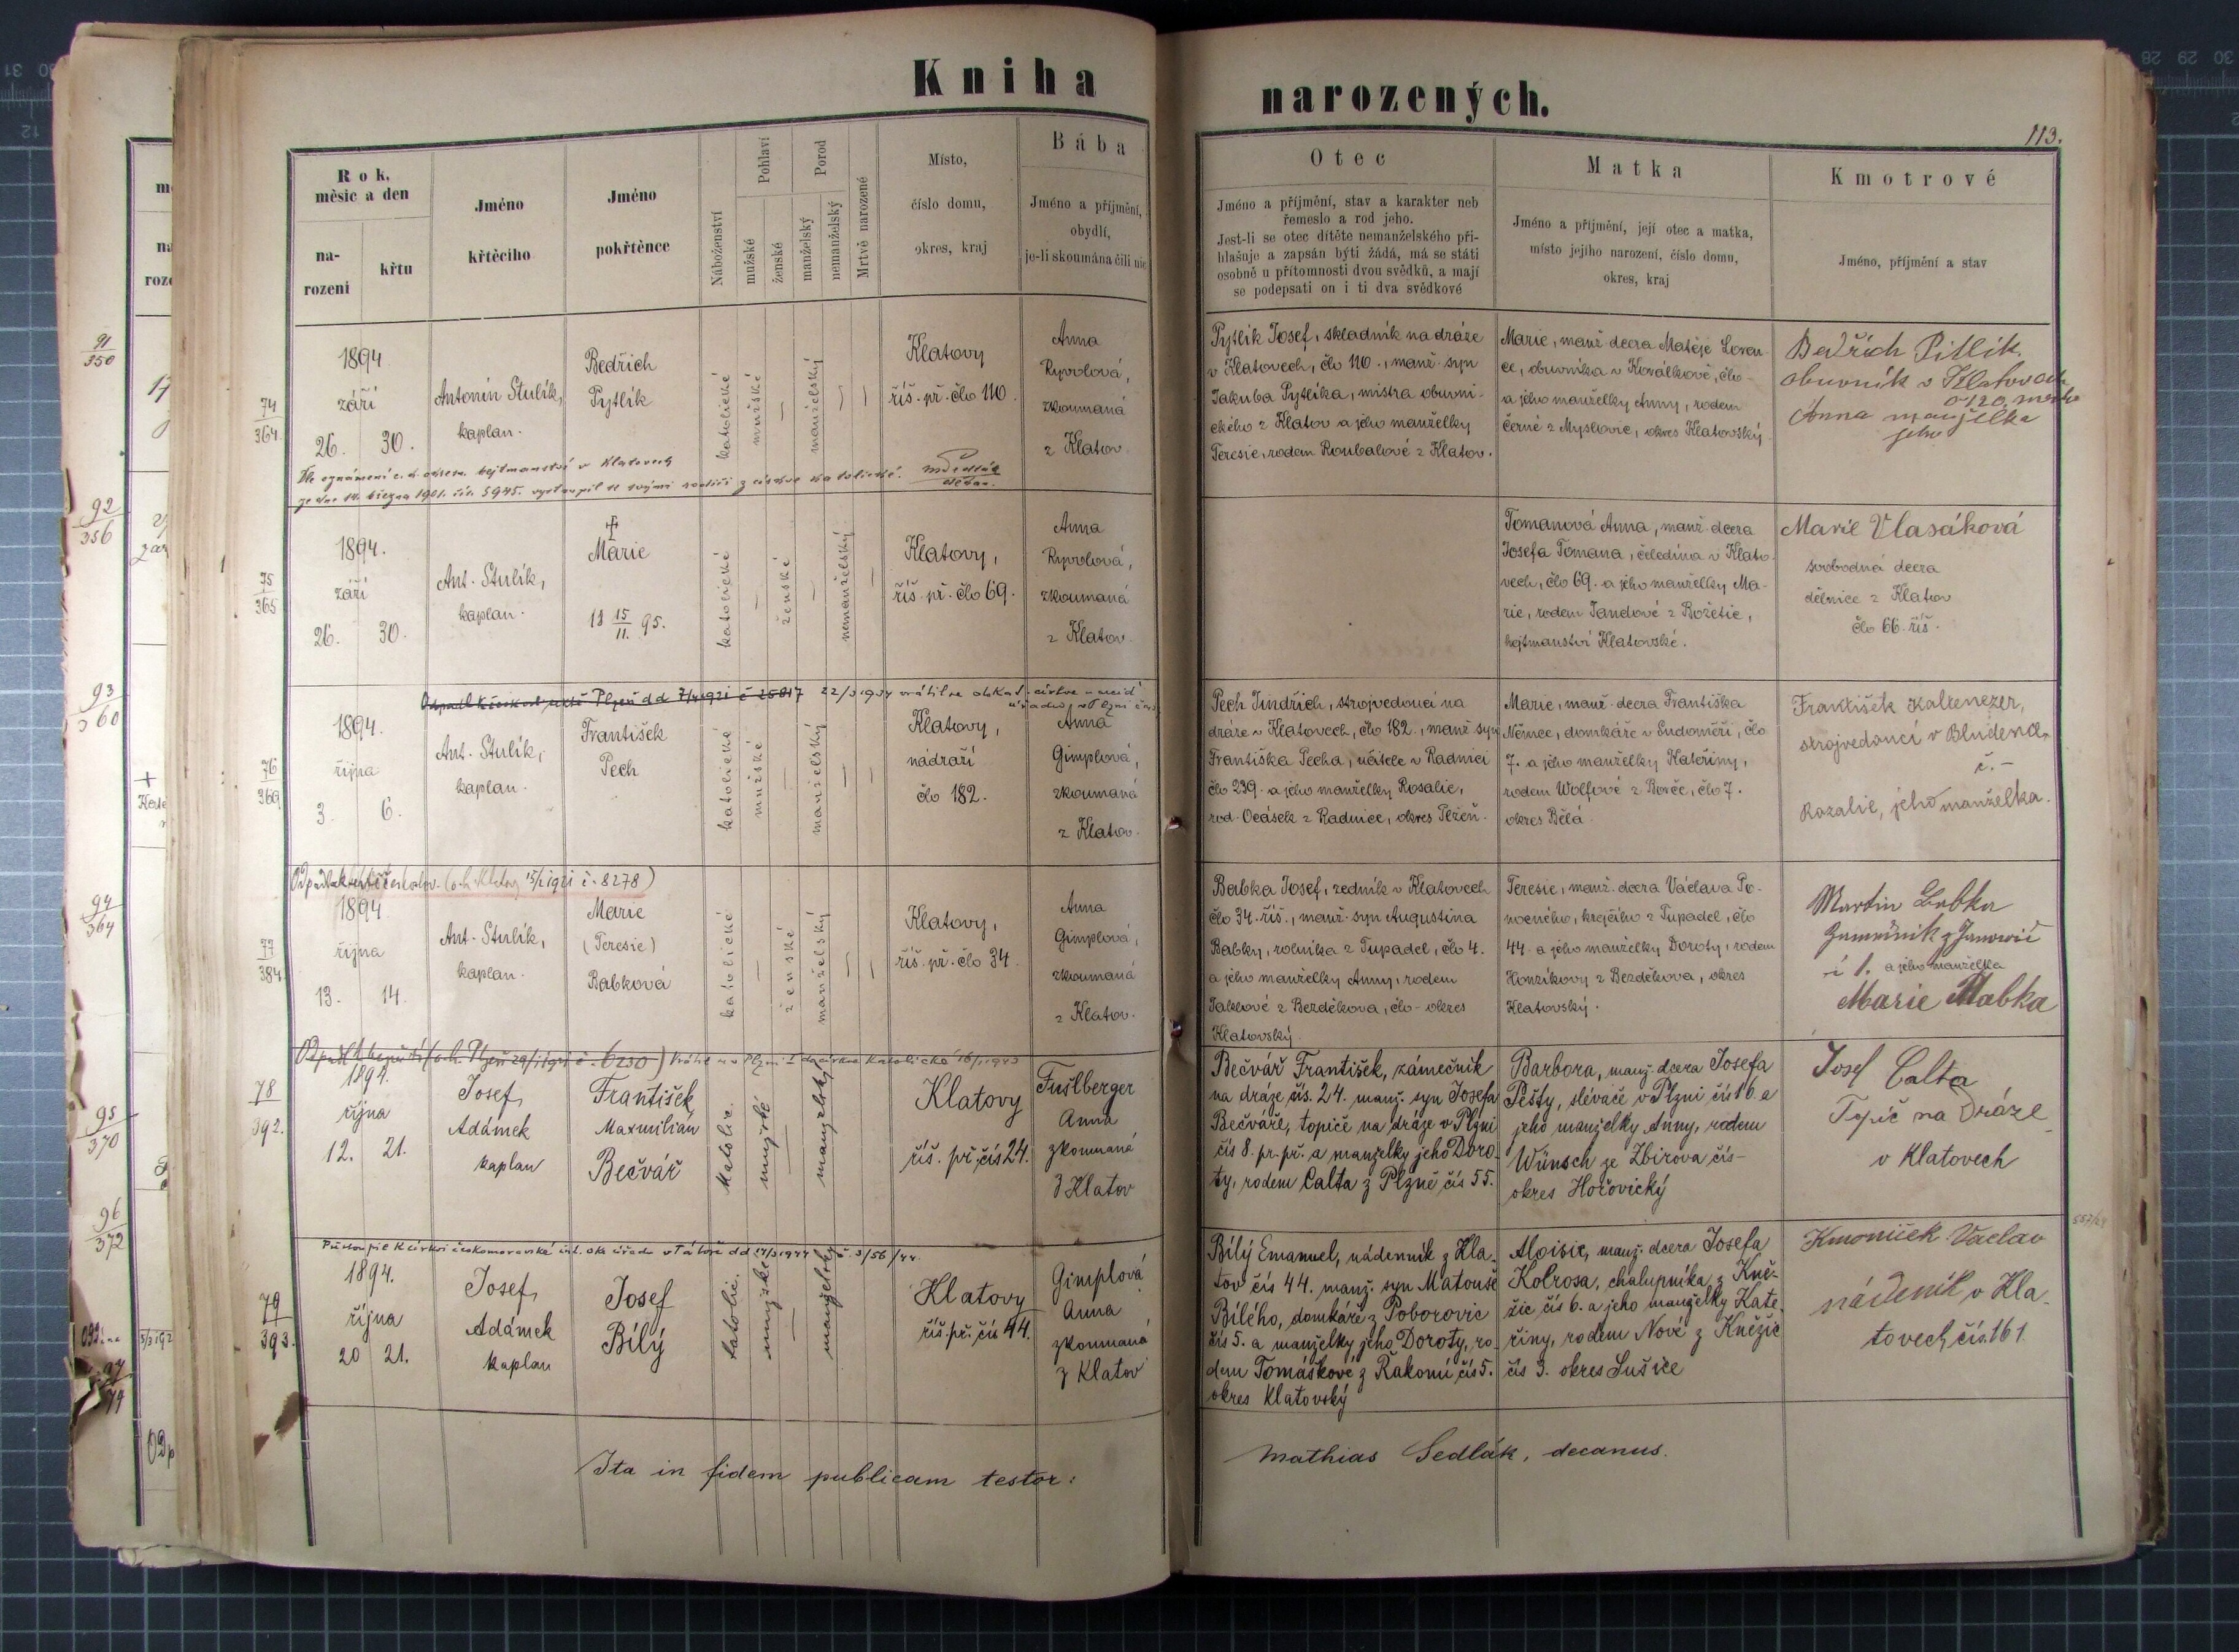 Kniha narozených.
113.
Rok, měsíc a den
na-
rození
křtu
Jméno
křtěcího
Jméno
pokřtěnce
Náboženství
Pohlaví
mužské
ženské
Porod
manželský
nemanželský
Mrtvě narozené
Místo,
číslo domu,
okres, kraj
Bába
Jméno a příjmení,
obydlí,
je-li skoumána čili nic
Otec
Jméno a příjmení, stav a karakter neb
řemeslo a rod jeho.
Jest-li se otec dítěte nemanželského při-
hlašuje a zapsán býti žádá, má se státi
osobně u přítomnosti dvou svědků, a mají
se podepsati on i ti dva svědkové
Matka
Jméno a příjmení, její otec a matka,
místo jejího narození, číslo domu,
okres, kraj
Kmotrové
Jméno, příjmení a stav
91
350
92
356
93
360
94
364
95
370
96
372
74
364.
1894
září
26. 30.
Antonín Stulík,
kaplan.
Bedřich
Pytlík
katolické
mužské
manželský
Klatovy
říš. př. člo 110.
Anna
Rypolová,
zkoumaná
z Klatov
Pytlík Josef, skladník na dráze
v Klatovech, člo 110., manž. syn
Jakuba Pytlíka, mistra obuvni-
ckého z Klatov a jeho manželky
Teresie, rodem Roubalové z Klatov.
Marie, manž. dcera Matěje Loren-
ce, obuvníka v Koválkově, člo-
a jeho manželky Anny, rodem
Černé z Myslovic, okres Klatovský.
Bedřich Pitlík
obuvník v Klatovech
Anna manželka
jeho
Dle oznámení c. k. okres. hejtmanství v Klatovech
ze dne 14. března 1901. čís. 5945. vystoupil se svými rodiči z církve katolické.
MSedlák
děkan.
75
365
1894.
září
26. 30.
Ant. Stulík,
kaplan.
Marie
18 15/11. 95.
katolické
ženské
nemanželský
Klatovy,
říš. př. člo 69.
Anna
Rypolová,
zkoumaná
z Klatov.
Tomanová Anna, manž. dcera
Josefa Tomana, čeledína v Klato-
vech, člo 69. a jeho manželky Ma-
rie, rodem Tandové z Božetic,
hejtmanství Klatovské.
Marie Vlasáková
svobodná dcera
dělnice z Klatov
člo 66. říš.
76
369
1894.
října
3. 6.
Ant. Stulík,
kaplan.
František
Pech
katolické
mužské
manželský
Klatovy,
nádraží
člo 182.
Anna
Gimplová,
zkoumaná
z Klatov.
Pech Jindřich, strojvedoucí na
dráze v Klatovech, člo 182., manž. syn
Františka Pecha, učitele v Radnici
člo 239. a jeho manželky Rosalie,
rod. Ocásek z Radnice, okres Plzeň.
Marie, manž. dcera Františka
Němce, domkáře v Sudoměři, člo
7. a jeho manželky Kateřiny,
rodem Wolfové z Borče, člo 7.
okres Bělá.
František Kaltenezer,
strojvedoucí v Bludenz,
č. –
Rozalie, jeho manželka.
77
384
1894
října
13. 14.
Ant. Stulík,
kaplan.
Marie
(Teresie)
Babková
katolické
ženské
manželský
Klatovy,
říš. př. člo 34.
Anna
Gimplová,
zkoumaná
z Klatov.
Babka Josef, zedník v Klatovech
člo 34. říš., manž. syn Augustina
Babky, rolníka z Tupadel, člo 4.
a jeho manželky Anny, rodem
Jaklové z Bezděkova, člo- okres
Klatovský.
Teresie, manž. dcera Václava Po-
nocného, krejčího z Tupadel, člo
44. a jeho manželky Doroty, rodem
Honzíkovy z Bezděkova, okres
Klatovský.
Martin Babka
a jeho manželka
Marie Babka
78
392.
1894.
října
12. 21.
Josef
Adámek
kaplan
František
Maxmilian
Bečvář
Katolic.
mužské
manželský
Klatovy
říš. př. čís 24.
Fuslberger
Anna
zkoumaná
z Klatov
Bečvář František, zámečník
na dráze čís. 24. manž. syn Josefa
Bečváře, topiče na dráze v Plzni
čís 8. pr. př. a manželky jeho Doro-
ty, rodem Calta z Plzně čís 55.
Barbora, manž. dcera Josefa
Pešty, slévače v Plzni čís 16. a
jeho manželky Anny, rodem
Wünsch ze Zbirova čís-
okres Hořovický
Josef Calta
Topič na Dráze
v Klatovech
79
393.
1894.
října
20 21.
Josef
Adámek
kaplan
Josef
Bílý
katolic.
mužské
manželský
Klatovy
říš. př. čís 44.
Gimplová
Anna
zkoumaná
z Klatov
Bílý Emanuel, nádenník z Kla-
tov čís 44. manž. syn Matouše
Bílého, domkáře z Poborovic
čís 5. a manželky jeho Doroty, ro-
dem Tomáškové z Řakomi čís 5.
okres Klatovský
Aloisie, manž. dcera Josefa
Kolrosa, chalupníka z Kně-
žic čís 6. a jeho manželky Kate-
řiny, rodem Nové z Kněžic
čís 3. okres Sušice
Kmoníček Vaclav
nádeník v Kla-
tovech čís. 161
Ita in fidem publicam testor:
Mathias Sedlák, decanus.